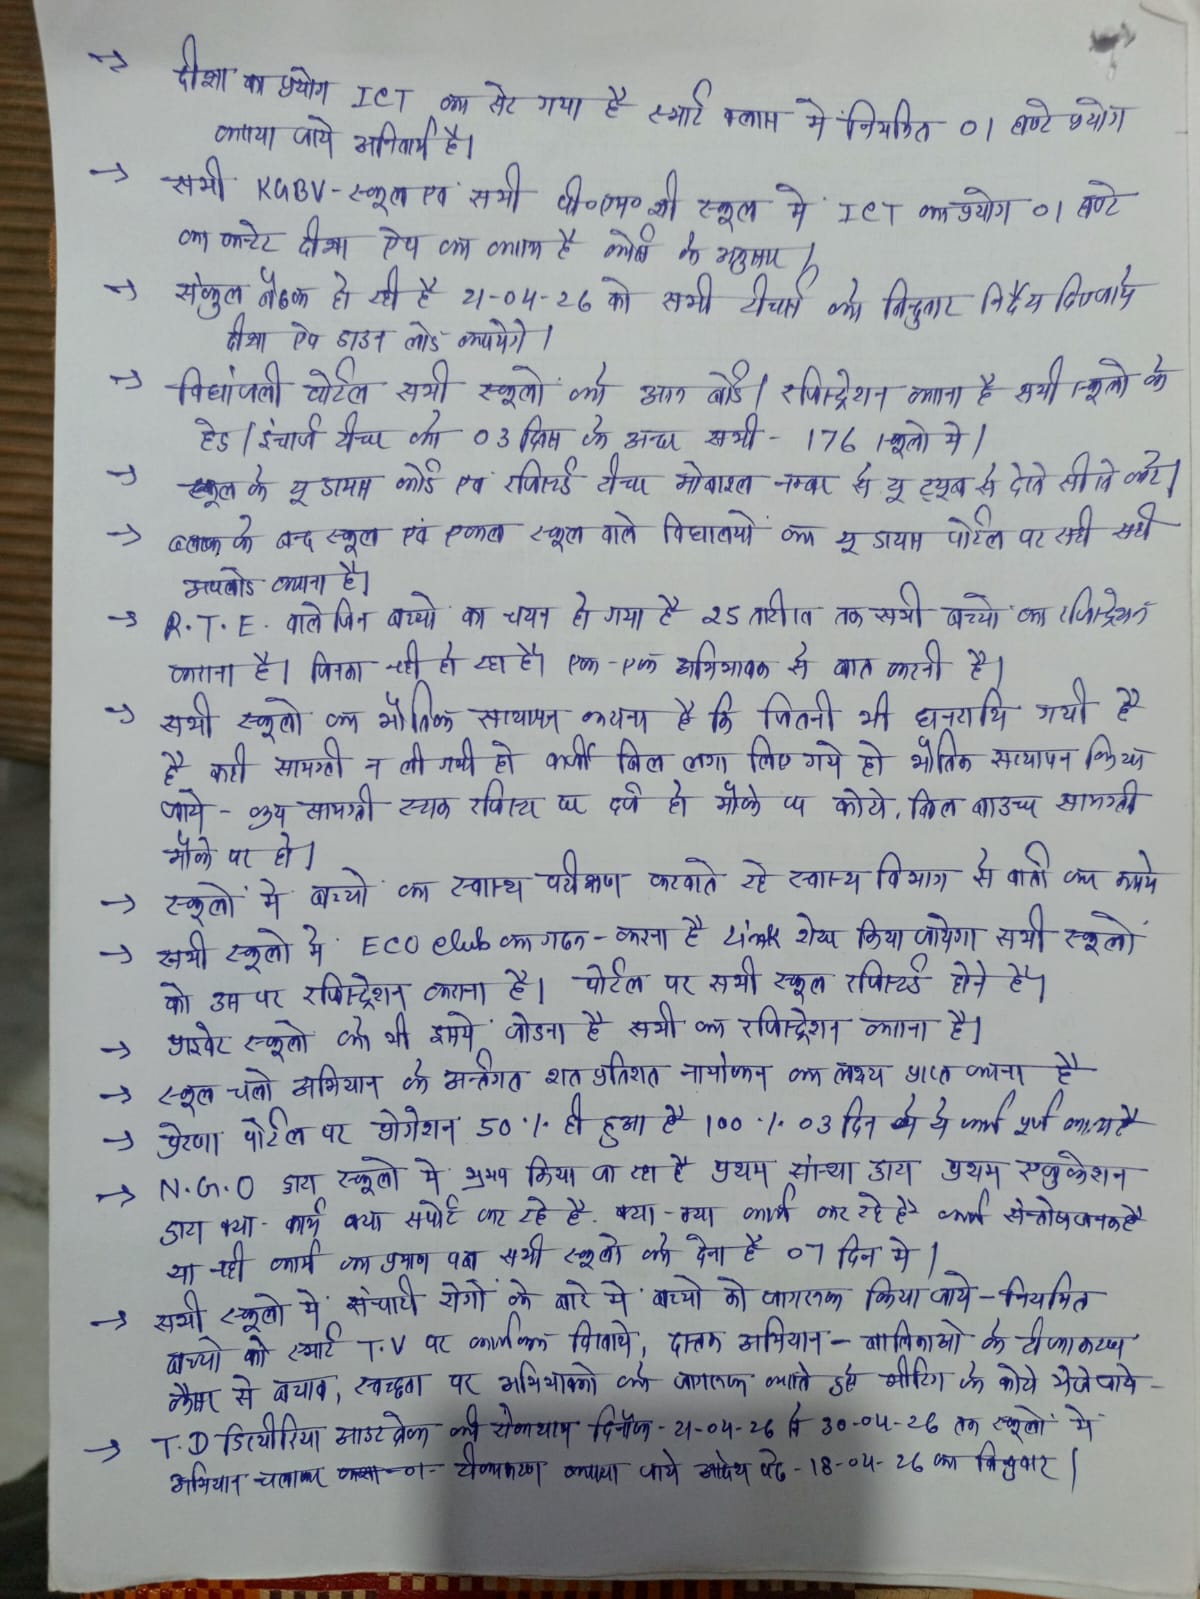 → दीक्षा का प्रयोग ICT का सेट गया है स्मार्ट क्लास में नियमित 01 घण्टे प्रयोग
कराया जाये अनिवार्य है।
→ सभी KGBV - स्कूल एवं सभी पी०एम० श्री स्कूल में ICT का प्रयोग 01 घण्टे
का कन्टेट दीक्षा ऐप का कराना है कोर्स के अनुसार।
→ संकुल बैठक हो रही है 21-04-26 को सभी टीचर्स को बिन्दुवार निर्देश दिए जाये
दीक्षा ऐप डाउन लोड करायेगे।
→ विद्यांजली पोर्टल सभी स्कूलों को आन बोर्ड / रजिस्ट्रेशन कराना है सभी स्कूलो के
हेड / इंचार्ज टीचर को 03 दिवस के अन्दर सभी - 176 स्कूलो में।
→ स्कूल के यू डायस कोर्ड एवं रजिस्टर्ड टीचर मोबाइल नम्बर से यू ट्यूब से देखे सीखे करे।
→ ब्लाक के बन्द स्कूल एवं एकल स्कूल वाले विद्यालयों का यू डायस पोर्टल पर सही सही
अपलोड कराना है।
→ R.T.E. वाले जिन बच्चो का चयन हो गया है 25 तारीख तक सभी बच्चो का रजिस्ट्रेशन
कराना है। जिनका नही हो रहा है। एक-एक अभिभावक से बात करनी है।
→ सभी स्कूलो का भौतिक सत्यापन कराना है कि जितनी भी धनराशि गयी है
है कही सामग्री न ली गयी हो फर्जी बिल लगा लिए गये हो भौतिक सत्यापन किया
जाये - क्रय सामग्री स्टाक रजिस्टर पर दर्ज हो मौके पर फोटो, बिल बाउचर सामग्री
मौके पर हो।
→ स्कूलों में बच्चो का स्वास्थ परीक्षण करवाते रहे स्वास्थ्य विभाग से वार्ता कर कराये
→ सभी स्कूलो में ECO club का गठन - करना है Link शेयर किया जायेगा सभी स्कूलों
को उस पर रजिस्ट्रेशन कराना है। पोर्टल पर सभी स्कूल रजिस्टर्ड होने है।
→ प्राइवेट स्कूलो को भी इसमे जोडना है सभी का रजिस्ट्रेशन कराना है।
→ स्कूल चलो अभियान के अर्न्तगत शत प्रतिशत नामांकन का लक्ष्य प्राप्त करना है
→ प्रेरणा पोर्टल पर प्रोगेशन 50 % ही हुआ है 100 % 03 दिन मे ये कार्य पूर्ण कराना है
→ N.G.O द्वारा स्कूलो में भ्रमण किया जा रहा है प्रथम संस्था द्वारा प्रथम एजुकेशन
द्वारा क्या - कार्य क्या सपोर्ट कर रहे है. क्या-क्या कार्य कर रहे है कार्य संन्तोषजनक है
या नही कार्य का प्रमाण पत्र सभी स्कूलो को देना है 07 दिन में।
→ सभी स्कूलो में संचारी रोगो के बारे में बच्चो को जागरूक किया जाये - नियमित
बच्चो को स्मार्ट T.V पर कार्यक्रम दिखाये, दस्तक अभियान - बालिकाओ के टीकाकरण
कैंसर से बचाव, स्वच्छता पर अभिभावको को जागरूक कराते हुये मीटिग के फोटो भेजे जाये -
→ T.D डिप्थीरिया आउट ब्रेक की रोकथाम दिनाँक - 21-04-26 से 30-04-26 तक स्कूलो में
अभियान चलाकर टीकाकरण कराया जाये आदेश 18-04-26 का बिन्दुवार।